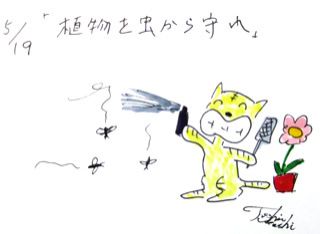 5/19「植物を虫から守れ」